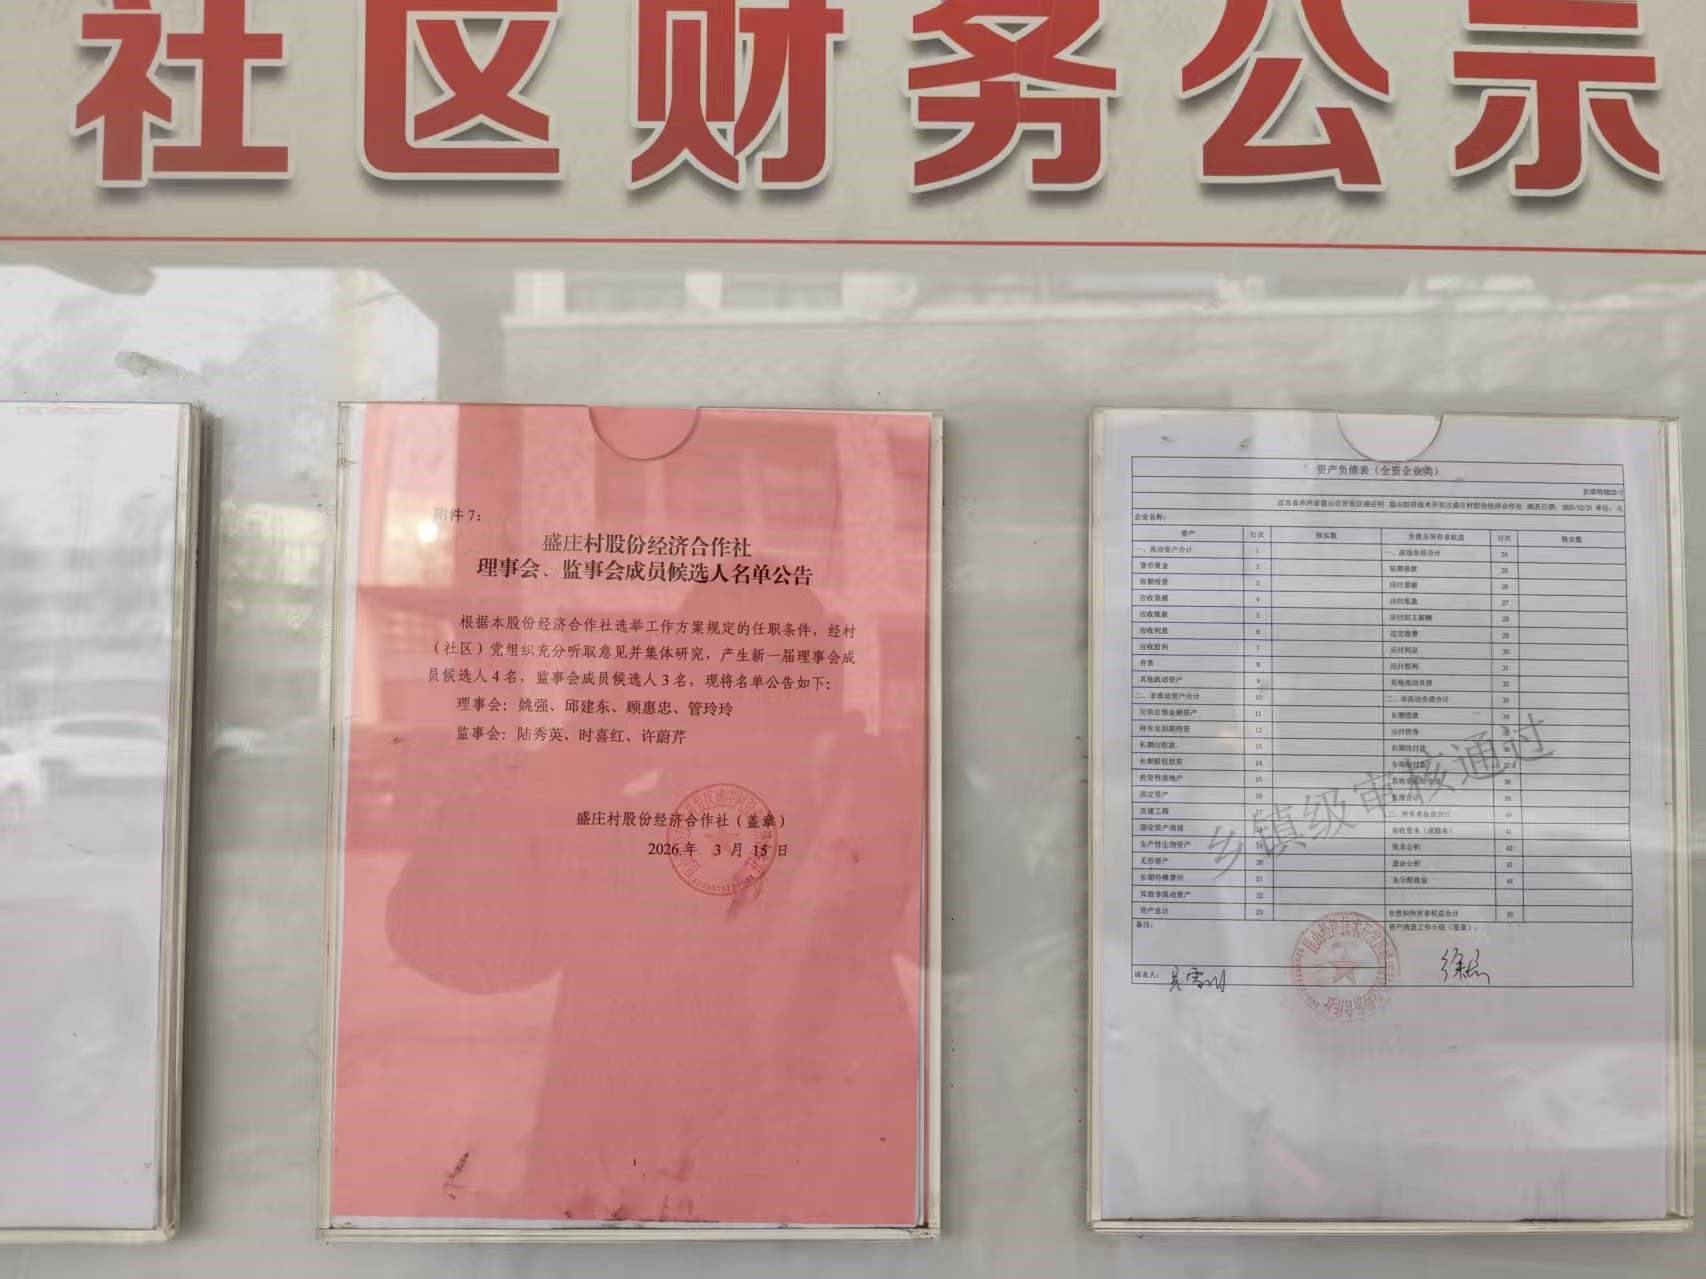 社区财务公示
附件7：
盛庄村股份经济合作社
理事会、监事会成员候选人名单公告
根据本股份经济合作社选举工作方案规定的任职条件，经村
（社区）党组织充分听取意见并集体研究，产生新一届理事会成
员候选人4名，监事会成员候选人3名，现将名单公告如下：
理事会：姚强、邱建东、顾惠忠、管玲玲
监事会：陆秀英、时喜红、许蔚芹
盛庄村股份经济合作社（盖章）
2026年 3 月 15 日
1
资产负债表（全资企业类）
企业名称：
资产 行次 核实数 负债及所有者权益 行次 核实数
一、流动资产合计 1 一、流动负债合计 24
货币资金 2 短期借款 25
短期投资 3 应付票据 26
应收票据 4 应付账款 27
应收账款 5 应付职工薪酬 28
应收利息 6 应交税费 29
应收股利 7 应付利息 30
存货 8 应付股利 31
其他流动资产 9 其他流动负债 32
二、非流动资产合计 10 二、非流动负债合计 33
可供出售金融资产 11 长期借款 34
持有至到期投资 12 应付债券
长期应收款 13 长期应付款
长期股权投资 14 专项应付款
投资性房地产 15
固定资产 16 39
在建工程 17
固定资产清理 实收资本（或股本） 41
生产性生物资产 19 资本公积 42
无形资产 20 盈余公积 43
长期待摊费用 21 未分配收益 44
其他非流动资产 22
资产总计 23 负债和所有者权益合计
备注： 资产清查工作小组（签章）：
填表人：
乡镇级审核通过